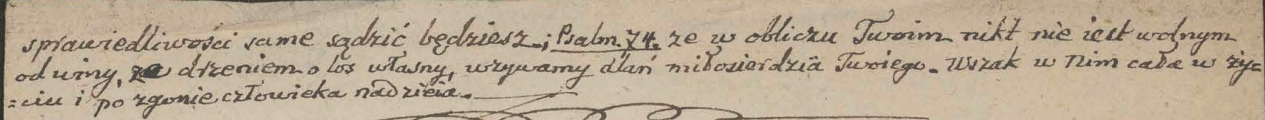 sprawiedliwości same sądzić będziesz.; Psalm. 74. ze w obliczu Twoim nikt nie iest wolnym
od winy, ze drzeniem o los własny, wzywamy dlań miłosierdzia Twoiego. Wszak w Nim cała w ży=
=ciu i po zgonie człowieka nadzieia.